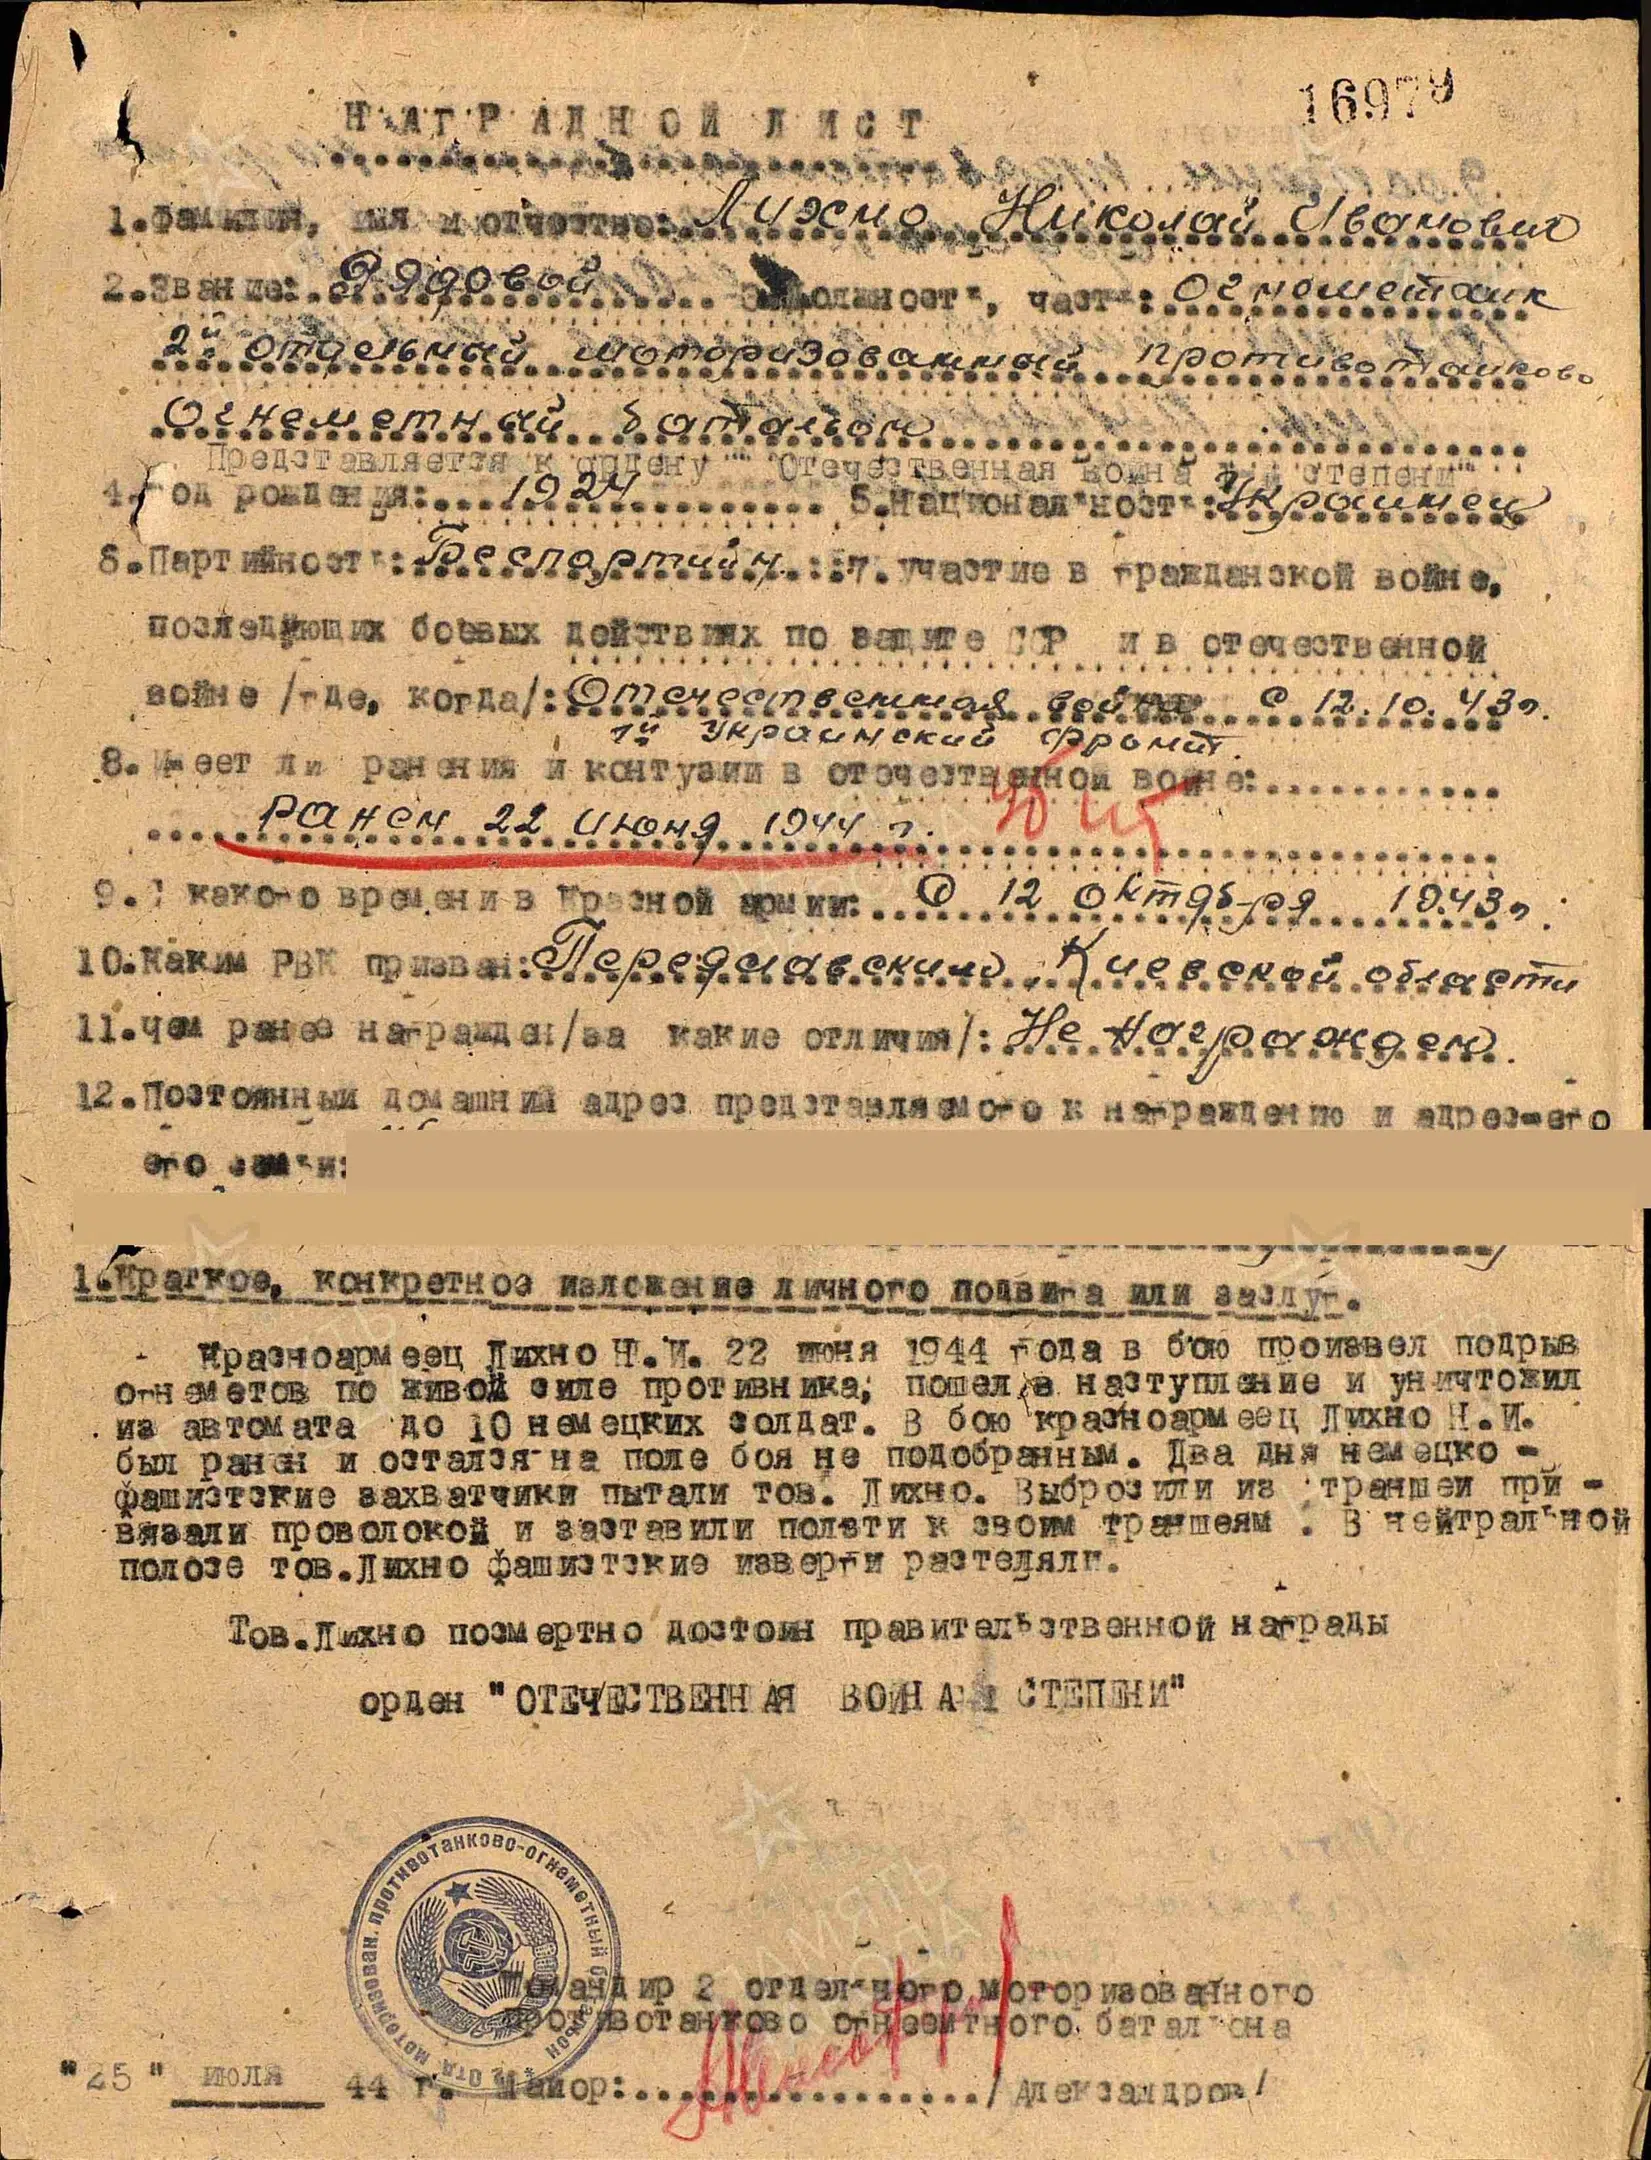 16979
НАГРАДНОЙ ЛИСТ
1.Фамилия, имя и отчество: Лихно Николай Иванович
2.Звание: Рядовой 3.Должность, часть: Огнеметчик
2й отдельный моторизованный противотанково
Огнеметный батальон
Представляется к ордену "Отечественная война степени"
4.Год рождения: 1924 5.Национальность: Украинец
6.Партийность: Беспартийн. 7.участие в гражданской войне,
последующих боевых действиях по защите СССР и в отечественной
войне /где, когда/: Отечественная война с 12.10.43г.
1й Украинский фронт.
8.Имеет ли ранения и контузии в отечественной войне:
ранен 22 июня 1944 г.
9.С какого времени в Красной армии: С 12 октября 1943г.
10.Каким РВК призван: Переяславским, Киевской области
11.Чем ранее награжден/за какие отличия/: Не награжден.
12.Постоянный домашний адрес представляемого к награждению и адрес-его
его семьи:
1.Краткое, конкретное изложение личного подвига или заслуг.
Красноармеец Лихно Н.И. 22 июня 1944 года в бою произвел подрыв
огнеметов по живой силе противника; пошел в наступление и уничтожил
из автомата до 10 немецких солдат. В бою красноармеец Лихно Н.И.
был ранен и остался на поле боя не подобранным. Два дня немецко-
фашистские захватчики пытали тов. Лихно. Выбросили из траншеи при-
вязали проволокой и заставили ползти к своим траншеям. В нейтральной
полосе тов.Лихно фашистские изверги растеляли.
Тов.Лихно посмертно достоин правительственной награды
орден "ОТЕЧЕСТВЕННАЯ ВОЙНА СТЕПЕНИ"
2 Отд. моторизован. противотанково-огнеметный батальон
Командир 2 отдельного моторизованного
противотанково огнеметного батальона
"25" июля 44 г. Майор: /Александров/
ПАМЯТЬ НАРОДА